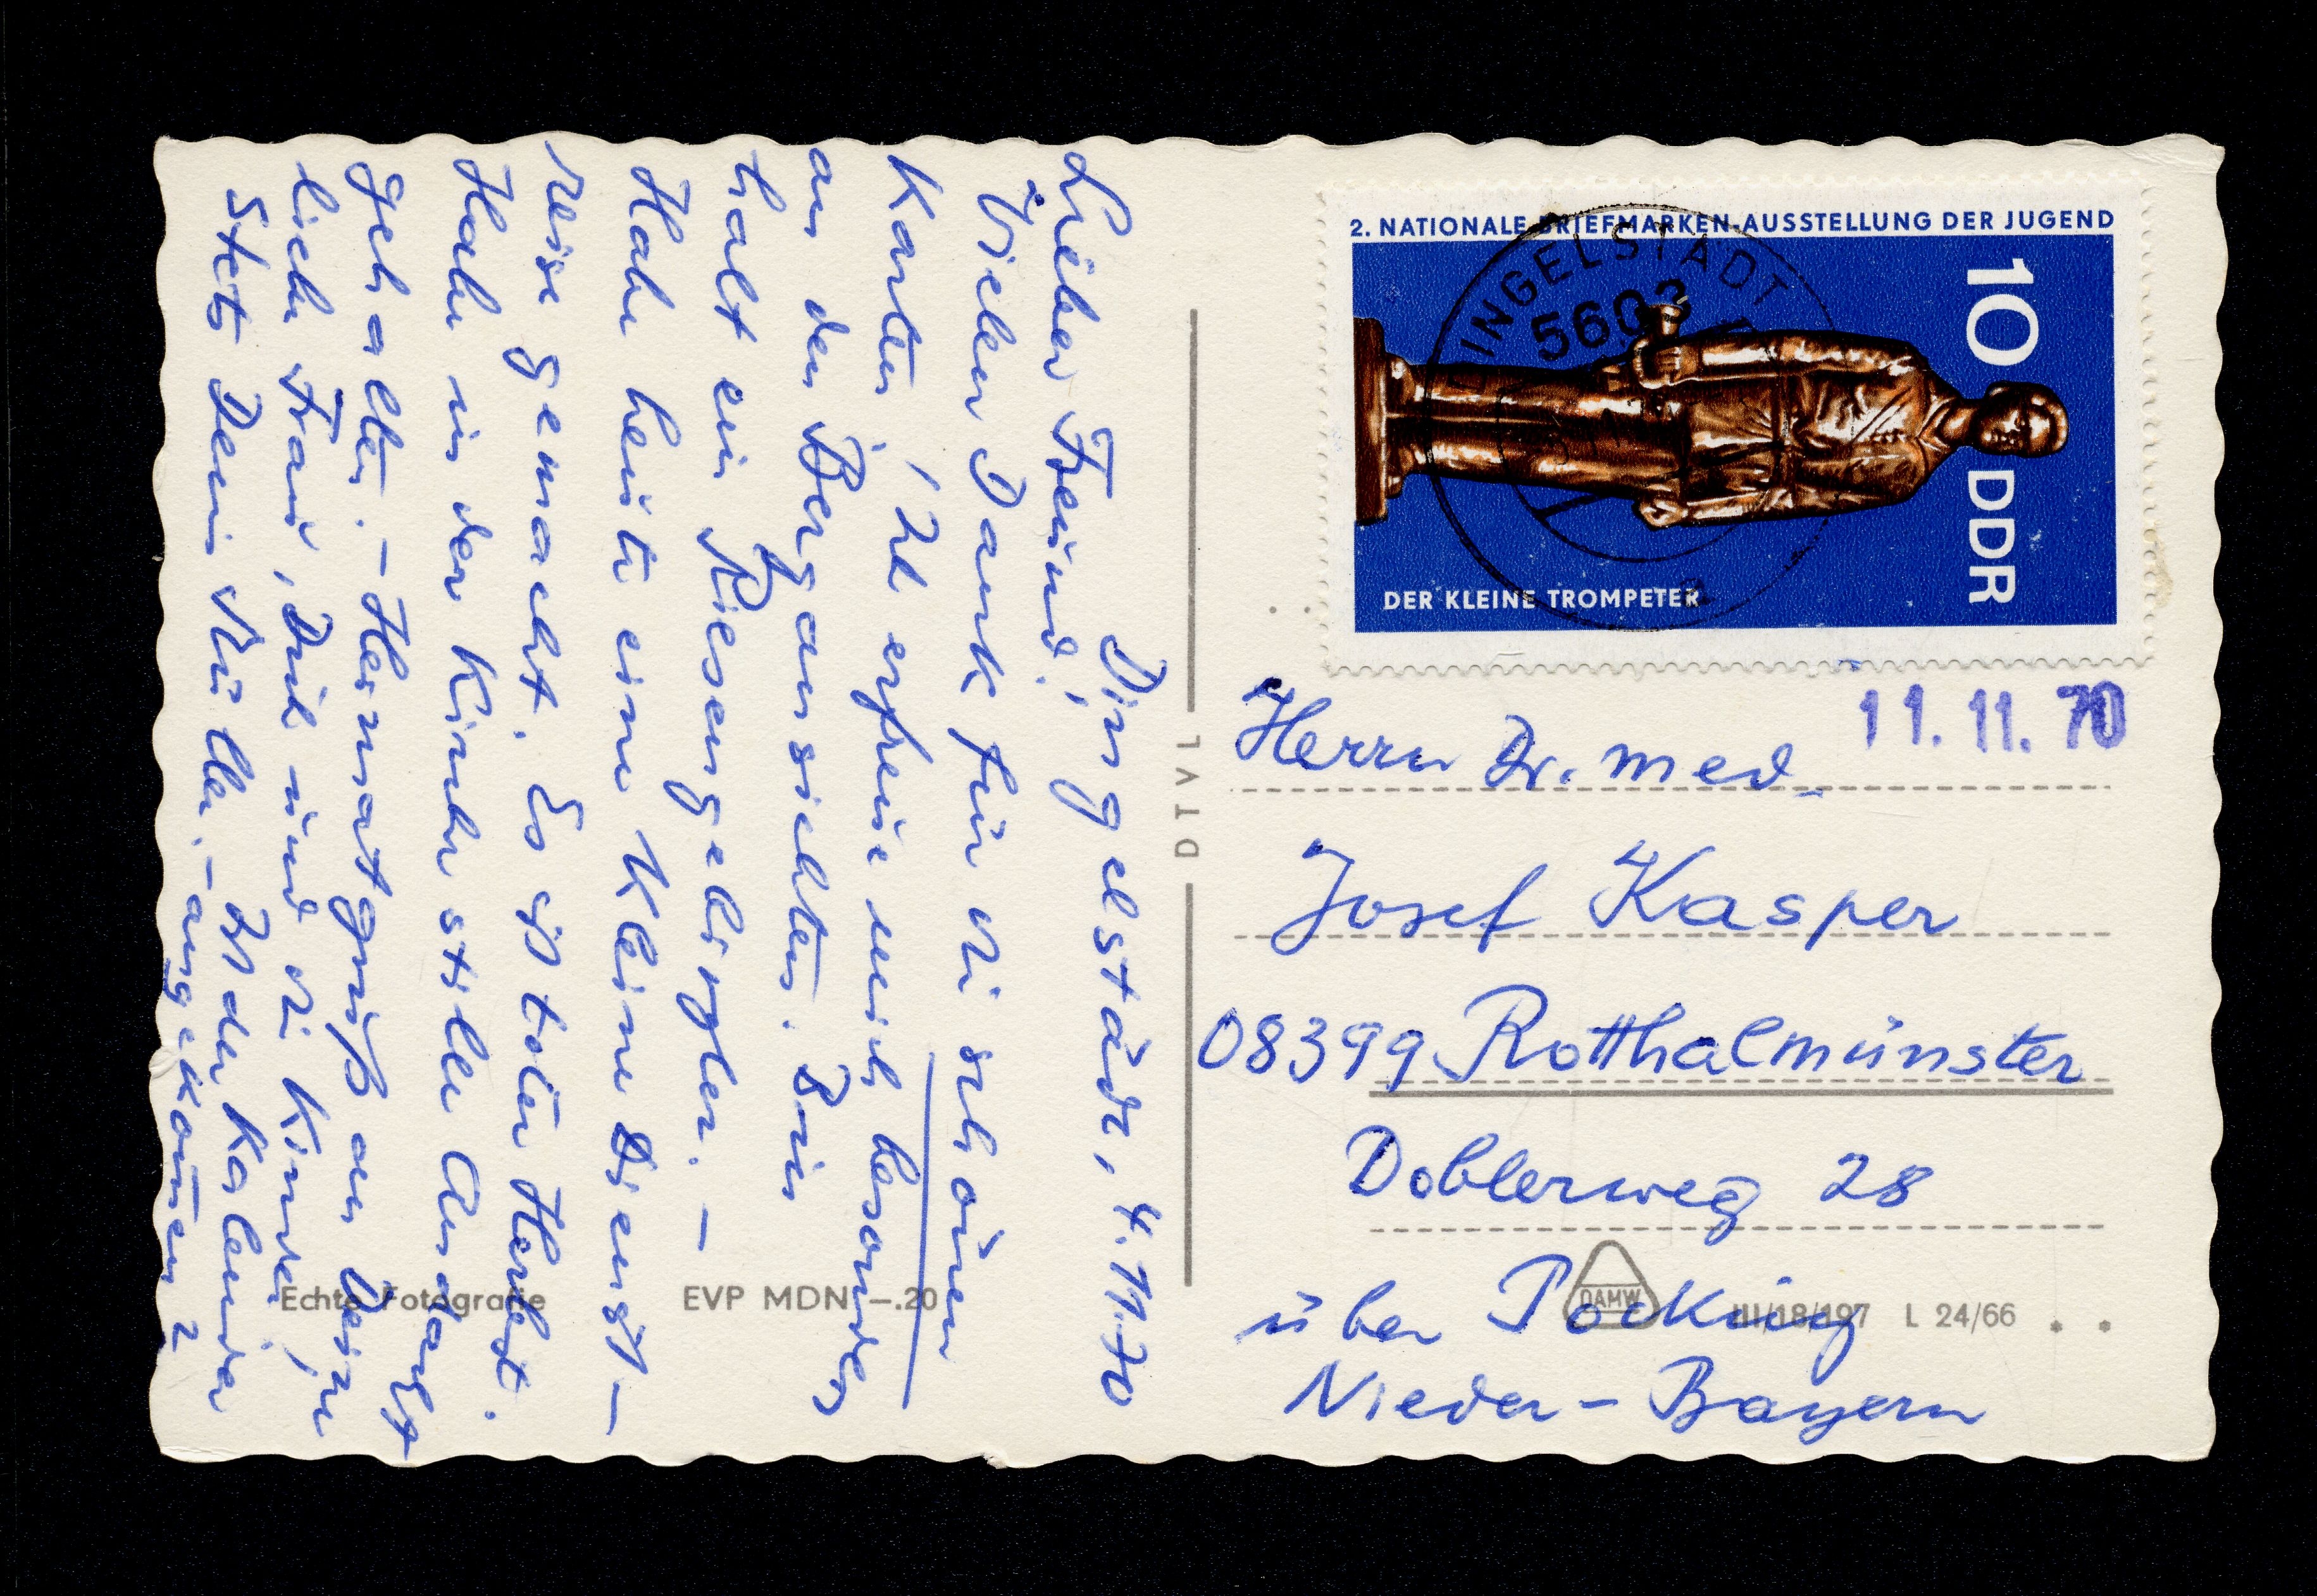 Dingelstädt, 4.11.70
Lieber Freund!
Vielen Dank für die schönen
Karten, ich erfreue mich besonders
an den Bergansichten. Bin
halt ein Riesengebirgler. –
Habe heute eine kleine Dienst-
reise gemacht. Es ist toller Herbst.
Habe in der Kirche stille Andacht
gehalten. – Heimatgruß an Deine
liebe Frau, Dich und die Kinder,
stets Dein Müller. – Ist der Kalender
angekommen?
Echte Fotografie
EVP MDN –.20
DTVL
2. NATIONALE BRIEFMARKEN-AUSSTELLUNG DER JUGEND
10 DDR
DER KLEINE TROMPETER
INGELSTÄDT
5603
11. 11. 70
Herrn Dr. med.
Josef Kasper
08399 Rotthalmünster
Doblerweg 28
über Pocking
Nieder-Bayern
DAMW
III/18/197 L 24/66